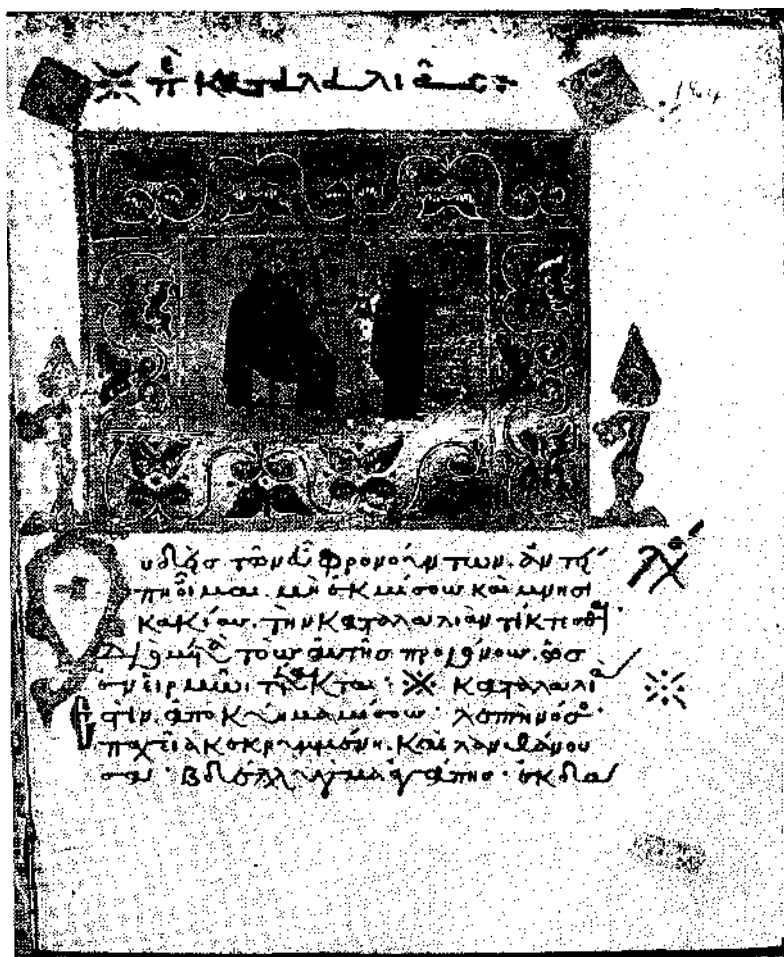 ※ πὲ καταλαλιᾶς:
Οὐδεὶς τῶν εὖ φρονούντων. ἀντεί
ποι οἶμαι μὴ ἐκ μίσους καὶ μνησι
κακίας. τὴν καταλαλιὰν τίκτεσθαι·
τοὺς αὐτῆς προγόνους. ὡς
ἐν εἱρμῶι τέτακται· ※ καταλαλιά
ἐστιν. ἀποκύημα μίσους· λεπτὴ νόσος·
παχεῖα κεκρυμμένη. καὶ λανθάνου
σα· ἀγάπης· ἐκδα